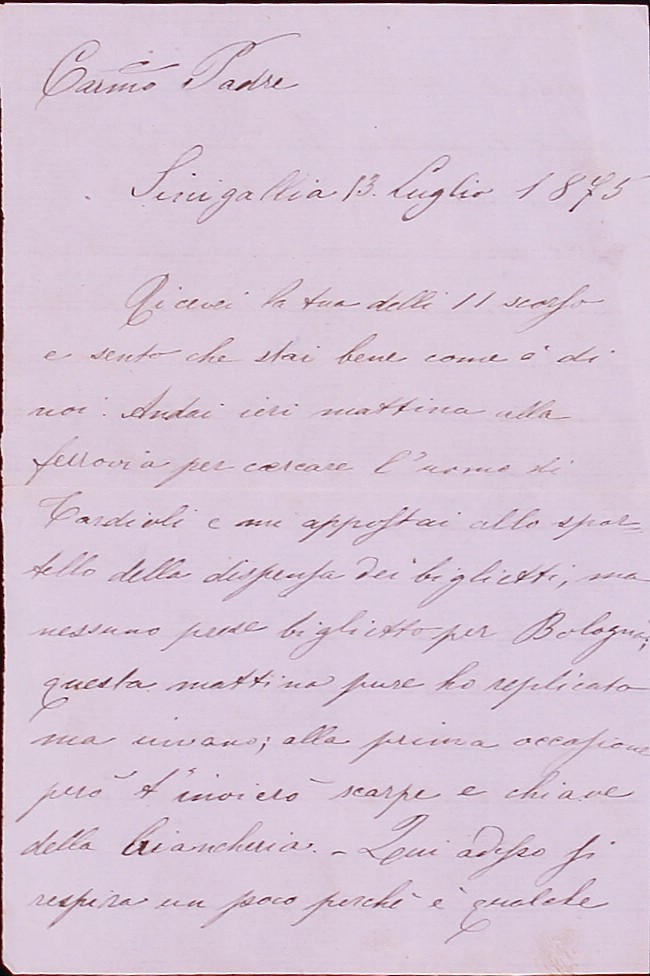 Carmo Padre
Sinigallia 13. Luglio 1875
Ricevei la tua delli 11 scorso
e sento che stai bene come è di
noi. Andai ieri mattina alla
ferrovia per cercare l'uomo di
Tardioli e mi appostai allo spor=
tello della dispensa dei biglietti, ma
nessuno prese biglietto per Bologna;
questa mattina pure ho replicato
ma invano; alla prima occasione
però t'invierò scarpe e chiave
della biancheria. - Qui adesso si
respira un poco perchè è qualche